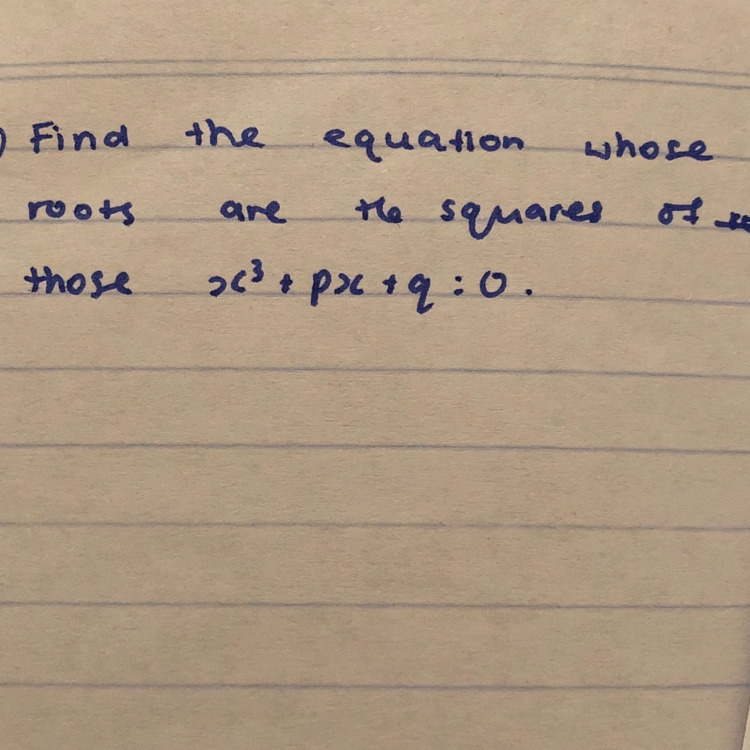 ) Find the equation whose
roots are the squares of
those x³ + px + q = 0.